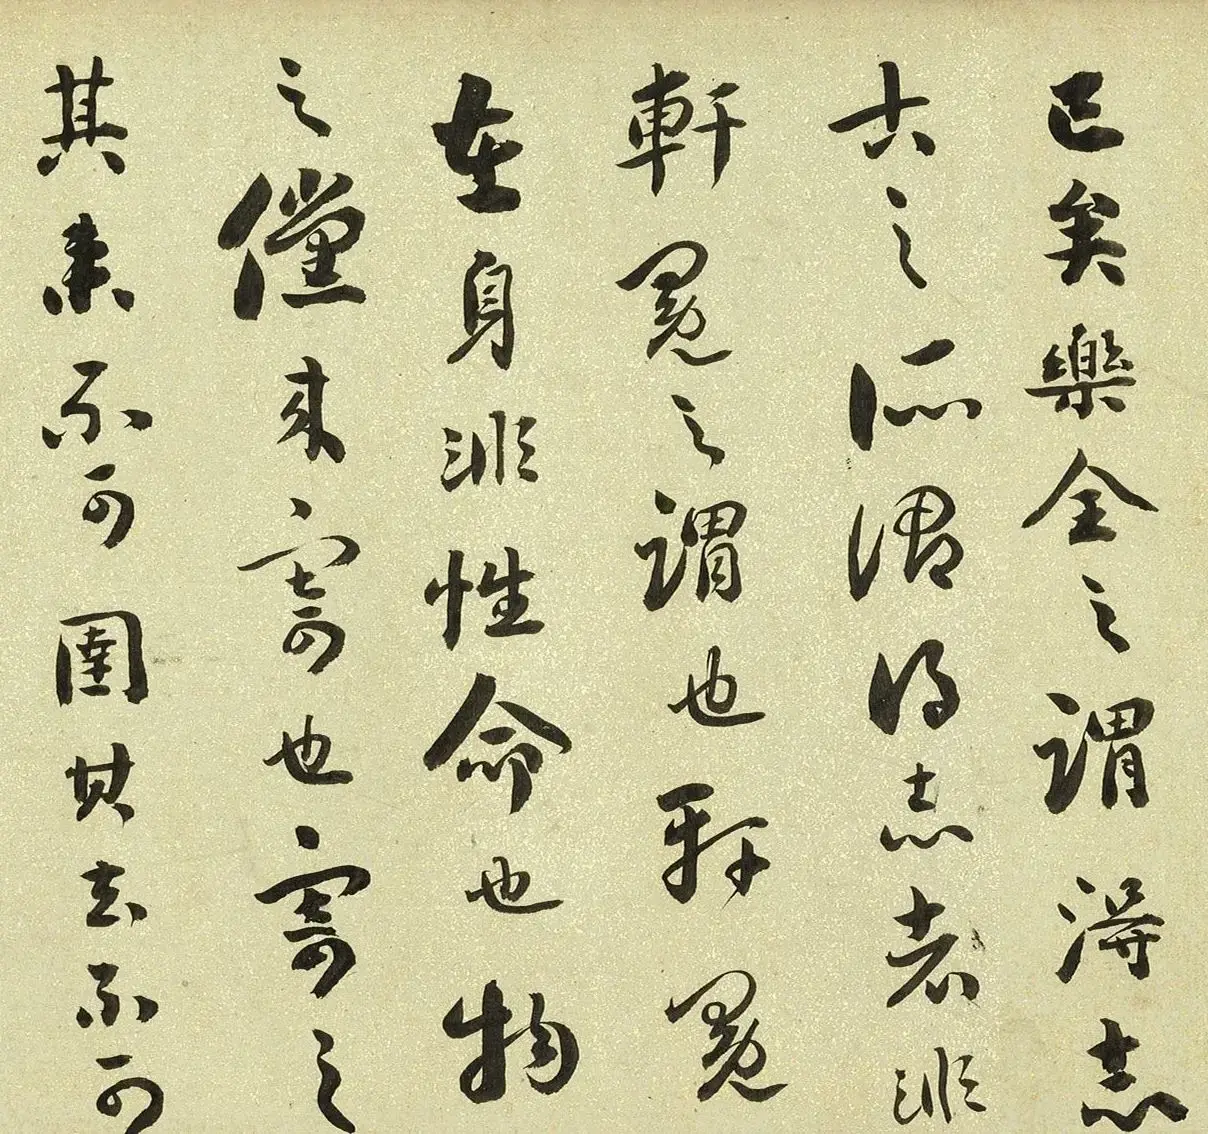 已矣樂全之謂得志
古之所謂得志者非
軒冕之謂也軒冕
在身非性命也物
之儻來寄也寄之
其来不可圉其去不可